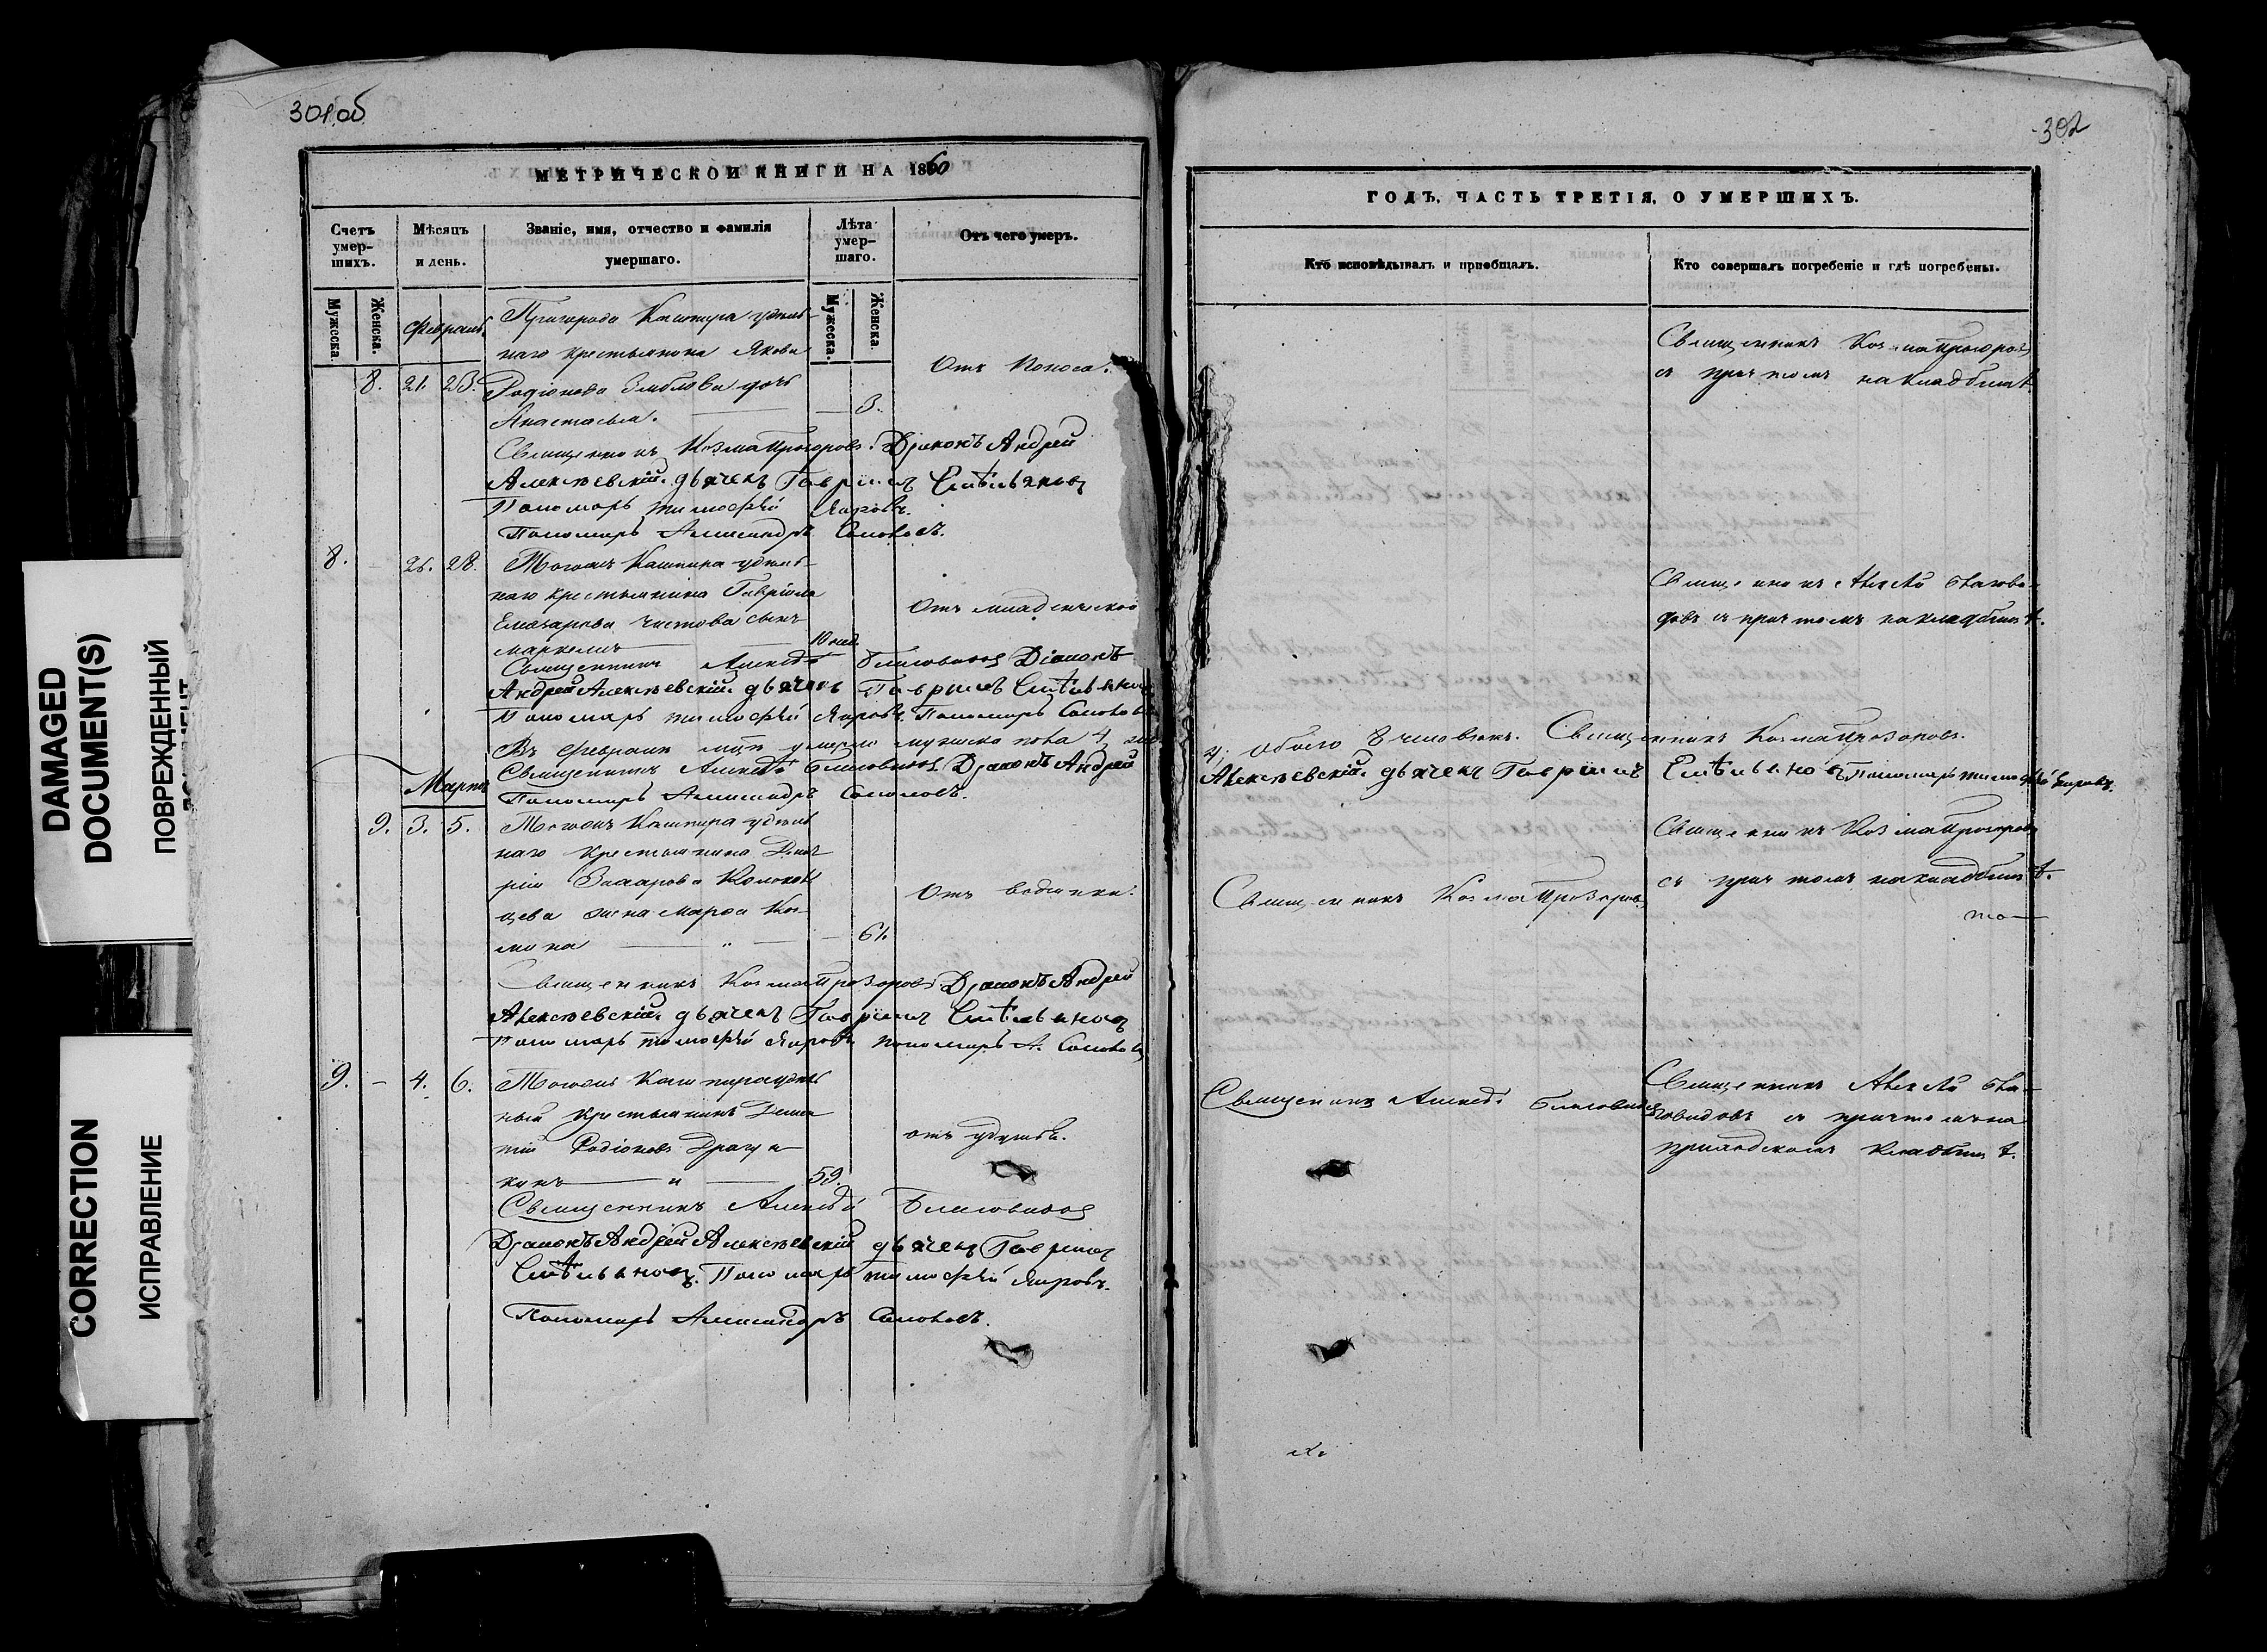 301 об
МЕТРИЧЕСКОЙ КНИГИ НА 1860
Счетъ умер-шихъ.
Мѣсяцъ и день.
Званіе, имя, отчество и фамилія умершаго.
Лѣта умер-шаго.
Отъ чего умеръ.
Мужеска.
Женска.
Мужеска.
Женска.
Февраль.
Пригорода Кашпира удѣль-
наго крестьянина Якова
8. 21. 23. Родіонова дочь
Анастасья. 3.
Отъ поноса.
Священникъ Козма Прозоровъ. Діаконъ Андрей
Алексѣевскій. дьячекъ Гавріилъ
Пономарь Тимофѣй
Пономарь Александръ Соловьевъ.
8. 26. 28. Тогожъ Кашпира удѣль-
наго крестьянина Гавріила
Елеазарова Чистова сынъ
10 нед.
Отъ младенческой
Священникъ Алексѣй Благовидовъ Діаконъ
Андрей Алексѣевскій. дьячекъ Гавріилъ
Пономарь Тимофѣй Пономарь
Въ Февралѣ мцѣ умерло мужеска пола 4,
Священникъ Алексѣй Благовидовъ. Діаконъ Андрей
Мартъ
Пономарь Александръ
9. 3. 5. Тогожъ Кашпира удѣль
наго крестьянина Дмит
рія Захарова
цева жена Марѳа Коз-
мина 61.
Отъ водянки.
Священникъ Козма Прозоровъ Діаконъ Андрей
Алексѣевскій. дьячекъ Гавріилъ
Пономарь Тимофѣй пономарь А.
9. - 4. 6. Тогожъ Кашпира удѣль
ный крестьянинъ
тій Родіоновъ
кинъ 59.
отъ удушья.
Священникъ Алексѣй Благовидовъ
Діаконъ Андрей Алексѣевскій дьячекъ Гавріилъ
Пономарь Тимофѣй
Пономарь Александръ
302
ГОДЪ, ЧАСТЬ ТРЕТІЯ, О УМЕРШИХЪ.
Кто исповѣдывалъ и пріобщалъ.
Кто совершалъ погребеніе и гдѣ погребены.
Священникъ Козма Прозоровъ
съ причтомъ на кладбищѣ.
Священникъ Алексѣй Благови-
довъ съ причтомъ на кладбищѣ.
4. Обоего 8 человѣкъ. Священникъ Козма Прозоровъ.
Алексѣевскій. дьячекъ Гавріилъ Пономарь Тимофѣй
Священникъ Козма Прозоровъ
съ причтомъ на кладбищѣ.
Священникъ Козма Прозоровъ
Священникъ Алексѣй Благовидовъ
Священникъ Алексѣй Бла-
говидовъ съ причтомъ на
приходскомъ кладбищѣ.
DAMAGED
DOCUMENT(S)
ПОВРЕЖДЕННЫЙ
CORRECTION
ИСПРАВЛЕНИЕ